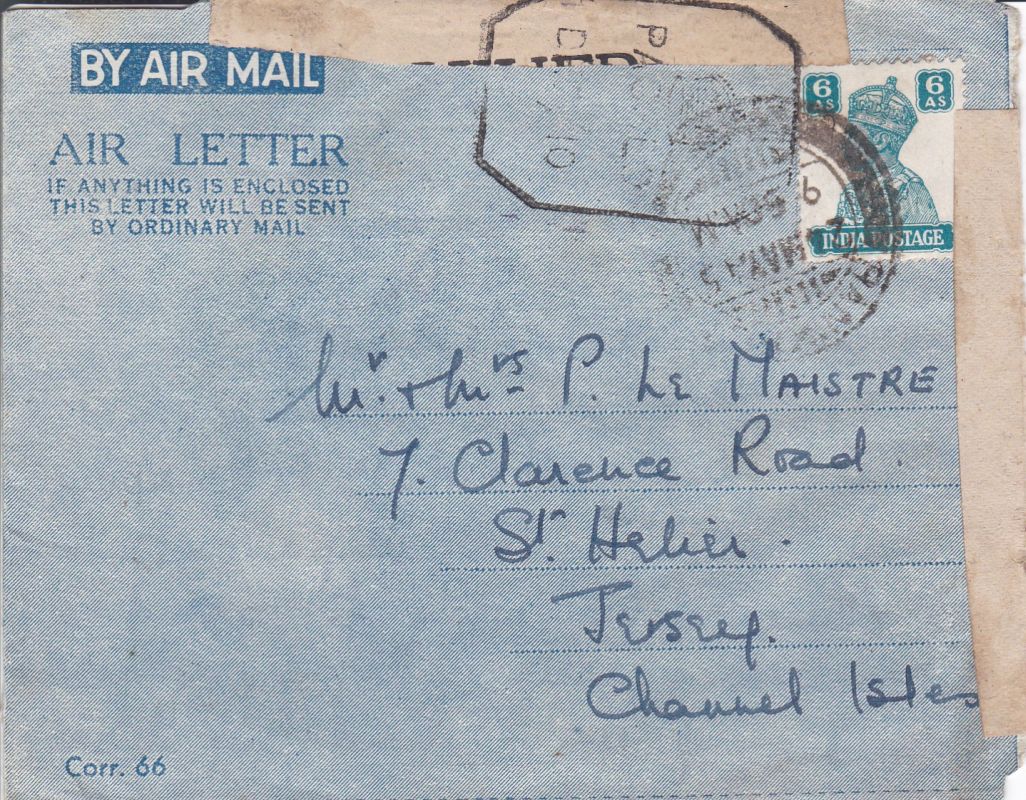 BY AIR MAIL
AIR LETTER
IF ANYTHING IS ENCLOSED
THIS LETTER WILL BE SENT
BY ORDINARY MAIL
6 AS 6 AS
INDIA POSTAGE
Mr. + Mrs P. LE MAISTRE
7. Clarence Road.
St. Helier.
Jersey.
Channel Isles
Corr. 66